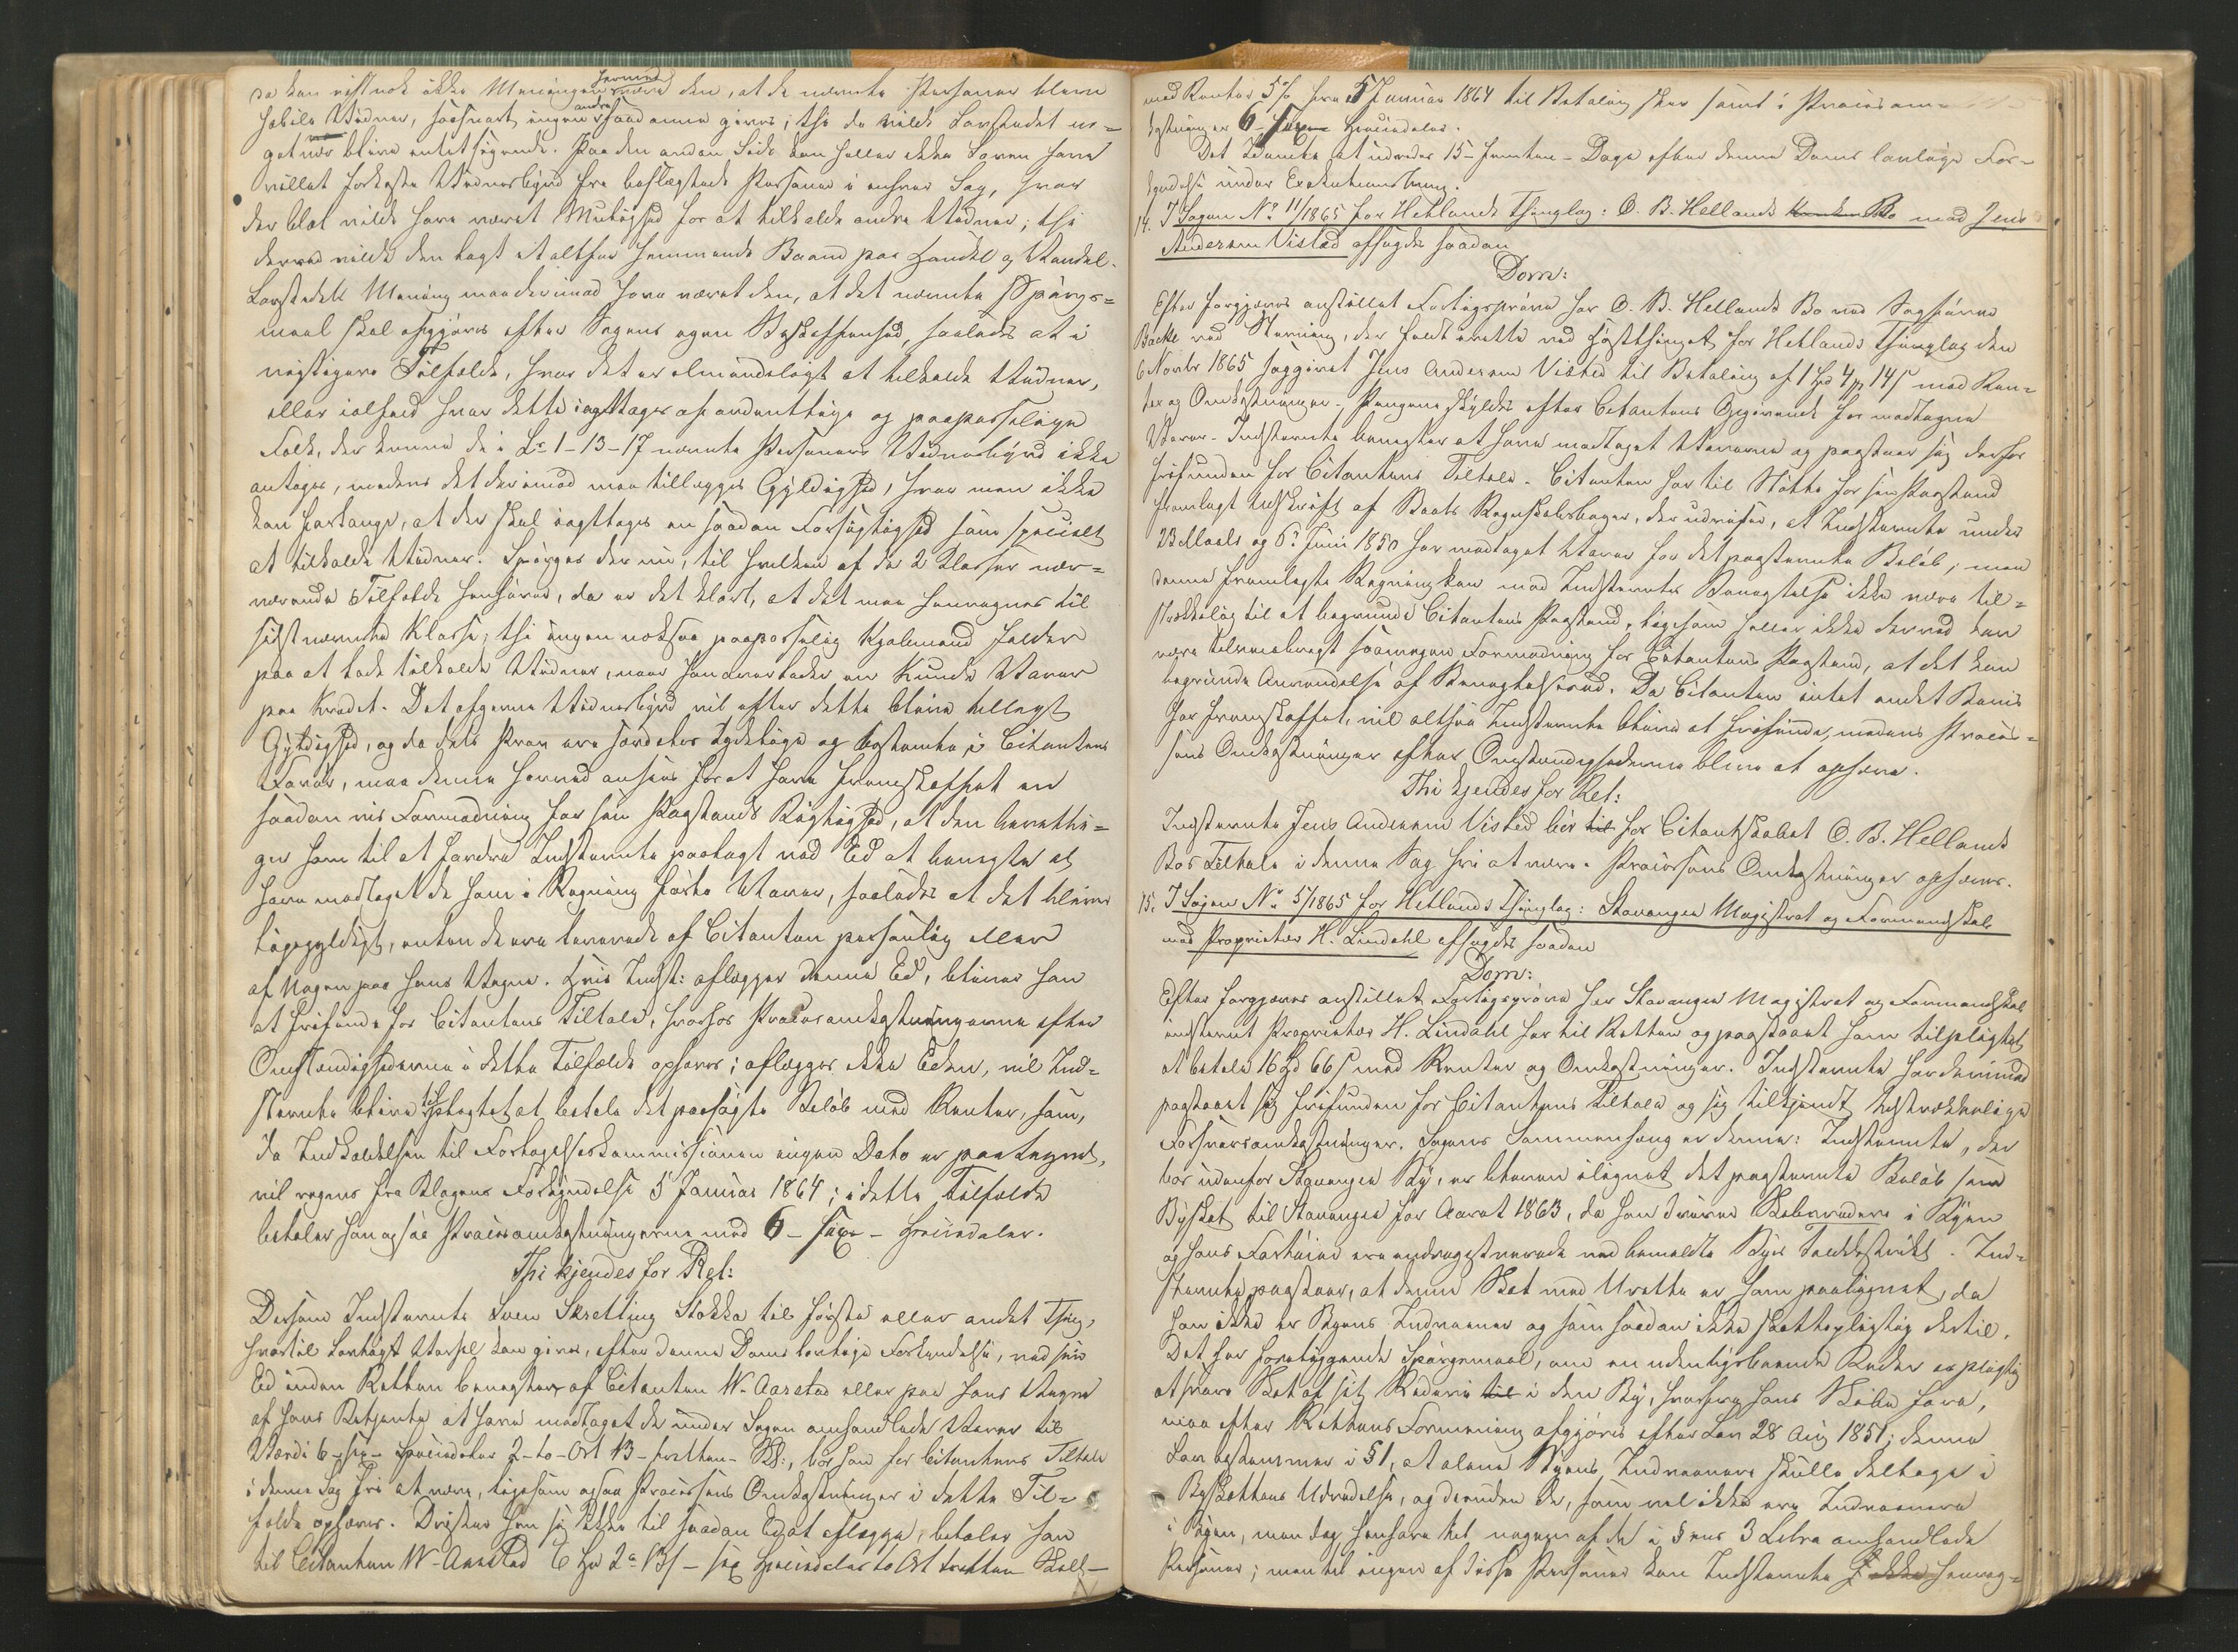 da kan vistnok ikke Meningen hermed være den, at de nævnte Personer bleve
habile Vidner, saasnart ingen andre saadanne gives; thi da vilde Lovbudet no-
get nær blive intetsigende. Paa den anden Side kan heller ikke Loven have
villet forkaste Vidnesbyrd fra beslægtede Personer i enhver Sag, hvor
der blot vilde have været Mulighed for at tilkalde andre Vidner; thi
derved vilde den lagt et altfor hemmende Baand paa Handel og Vandel.
Lovstedets Mening maa derimod have været den, at det nævnte Spörgs-
maal skal afgjöres efter Sagens egen Beskaffenhed, saaledes at i
vigtigere Tilfælde, hvor det er almindeligt at tilkalde Vidner,
eller ialfald hvor dette iagttages af ordentlige og paapasselige
Folk, der kunne de i L: 1-13-17 nævnte Personers Vidnesbyrd ikke
antages, medens det derimod maa tillægges Gyldighed, hvor man ikke
kan forlange, at der skal iagttages en saadan Forsigtighed som specielt
at tilkalde Vidner. Spörges der nu, til hvilken af de 2 Klasser nær-
værende Tilfælde henhörer, da er det klart, at det maa henregnes til
sidstnævnte Klasse; thi ingen noksaa paapasselig Kjöbmand falder
paa at lade tilkalde Vidner, naar han overlader en Kunde Varer
paa Kredit. Det afgivne Vidnesbyrd vil efter dette blive tillagt
Gyldighed, og da dets Svar ere særdeles tydelige og bestemte i Citantens
Favör, maa denne herved ansees for at have fremskaffet en
saadan vis Formodning for sin Paastands Rigtighed, at den beretti-
ger ham til at fordre Indstævnte paalagt ved Ed at benægte at
have modtaget de ham i Regning förte Varer, saaledes at det bliver
ligegyldigt, enten de ere leverede af Citanten personlig eller
af Nogen paa hans Vegne. Hvis Indst: aflægger denne Ed, bliver han
at frifinde for Citantens Tiltale, hvorfor Procesomkostningerne efter
Omstændighederne i dette Tilfælde ophæves; aflægges ikke Eden, vil Ind-
stævnte blive tilpligtet at betale det paasögte Belöb med Renter, som,
da Indkaldelsen til Forligelseskommissionen ingen Dato er paategnet,
vil regnes fra Klagens Forkyndelse 5 Januar 1864; i dette Tilfælde
betaler han ogsaa Procesomkostningerne med 6 - sex - Speciedaler.
Thi kjendes for Ret:
Dersom Indstævnte Sven Skretting Stokka til förste eller andet Thing,
hvortil lovligt Varsel kan gives, efter denne Doms lovlige Forkyndelse, ved sin
Ed inden Retten benægter af Citanten W. Aarstad eller paa hans Vegne
af hans Betjente at have modtaget de under Sagen omhandlede Varer til
Værdi 6 - sex - Speciedaler 2 - to - Ort 13 - tretten - Sk:, bör han for Citantens Tiltale
i denne Sag fri at være, ligesom ogsaa Processens Omkostninger i dette Til-
fælde ophæves. Drister han sig ikke til saadan Ed at aflægge, betaler han
til Citanten W. Aarstad 6 Spd 2 o 13 s - sex Speciedaler to Ort tretten Skill -
med Renter 5% fra 5 Januar 1864 til Betaling sker samt i Procesom-
kostninger 6 - sex - Speciedaler.
Det Idömte at udredes 15 - femten - Dage efter denne Doms lovlige For-
kyndelse under Execution[s]tvang.
14. I Sagen No 11/1865 for Hetlands Thinglag: O. B. Hellands Bo mod Jens
Andersen Visted afsagdes saadan
Dom:
Efter forgjæves anstillet Forligspröve har O. B. Hellands Bo ved Sagförer
Backe ved Stevning, der faldt i rette ved Höstthinget for Hetlands Thinglag den
6 Novbr 1865 saggivet Jens Andersen Visted til Betaling af 1 Spd 4 ₰ 14 s med Ren-
ter og Omkostninger. Pengene skyldes efter Citantens Opgivende for modtagne
Varer. Indstævnte benægter at have modtaget Varerne og paastaar sig derfor
frifunden for Citantens Tiltale. Citanten har til Stötte for sin Paastand
fremlagt Udskrift af Boets Regnskabsboger, der udviser, at Indstævnte under
23 Marts og 6: Juni 1850 har modtaget Varer for det paastævnte Belöb; men
denne fremlagte Regning kan mod Indstævntes Benægtelse ikke være til-
strækkelig til at begrunde Citantens Paastand, ligesom heller ikke derved kan
være tilveiebragt saamegen Formodning for Citantens Paastand, at det kan
begrunde Anvendelse af Benægtelsesed. Da Citanten intet andet Bevis
har fremskaffet, vil altsaa Indstævnte blive at frifinde, medens Proces-
sens Omkostninger efter Omstændighederne blive at ophæve.
Thi kjendes for Ret:
Indstevnte Jens Andersen Visted bör til for Citantskabet O. B. Hellands
Bos Tiltale i denne Sag fri at være. Processens Omkostninger ophæves.
15. I Sagen No 5/1865 for Hetlands Thinglag: Stavanger Magistrat og Formandskab
mod Proprietær H. Lindahl afsagdes saadan
Dom:
Efter forgjæves anstillet Forligspröve har Stavanger Magistrat og Formandskab
indstevnt Proprietær H. Lindahl her til Retten og paastaaet ham tilpligtet
at betale 16 Spd 66 s med Renter og Omkostninger. Indstevnte har derimod
paastaaet sig frifunden for Citantens Tiltale og sig tilkjendt tilstrækkelige
Forsvarsomkostninger. Sagens Sammenhæng er denne: Indstevnte, der
bor udenfor Stavanger By, er bleven ilignet det paastevnte Belöb som
Byskat til Stavanger for Aaret 1863, da han driver Skibsrederi i Byen
og hans Fartöier ere indregistrerede ved bemeldte Byes Tolddistrikt. Ind-
stevnte paastaar, at denne Skat med Urette er ham paalignet, da
han ikke er Byens Indvaaner og som saadan ikke skattepligtig dertil.
Det her foreliggende Spörgsmaal, om en udenbysboende Reder er pligtig
at svare Skat af sit Rederi til i den By, hvorfra hans Skibe fare,
maa efter Rettens Formening afgjöres efter Lov 28 Aug 1851; denne
Lov bestemmer i § 1, at alene Byens Indvaanere skulle deltage i
Byskattens Udredelse, og desuden de, som vel ikke ere Indvaanere
i Byen, men dog henhöre til nogen af de i § ens 3 Litra omhandlede
Personer; men til ingen af disse Personer kan Indstevnte ikke henreg-